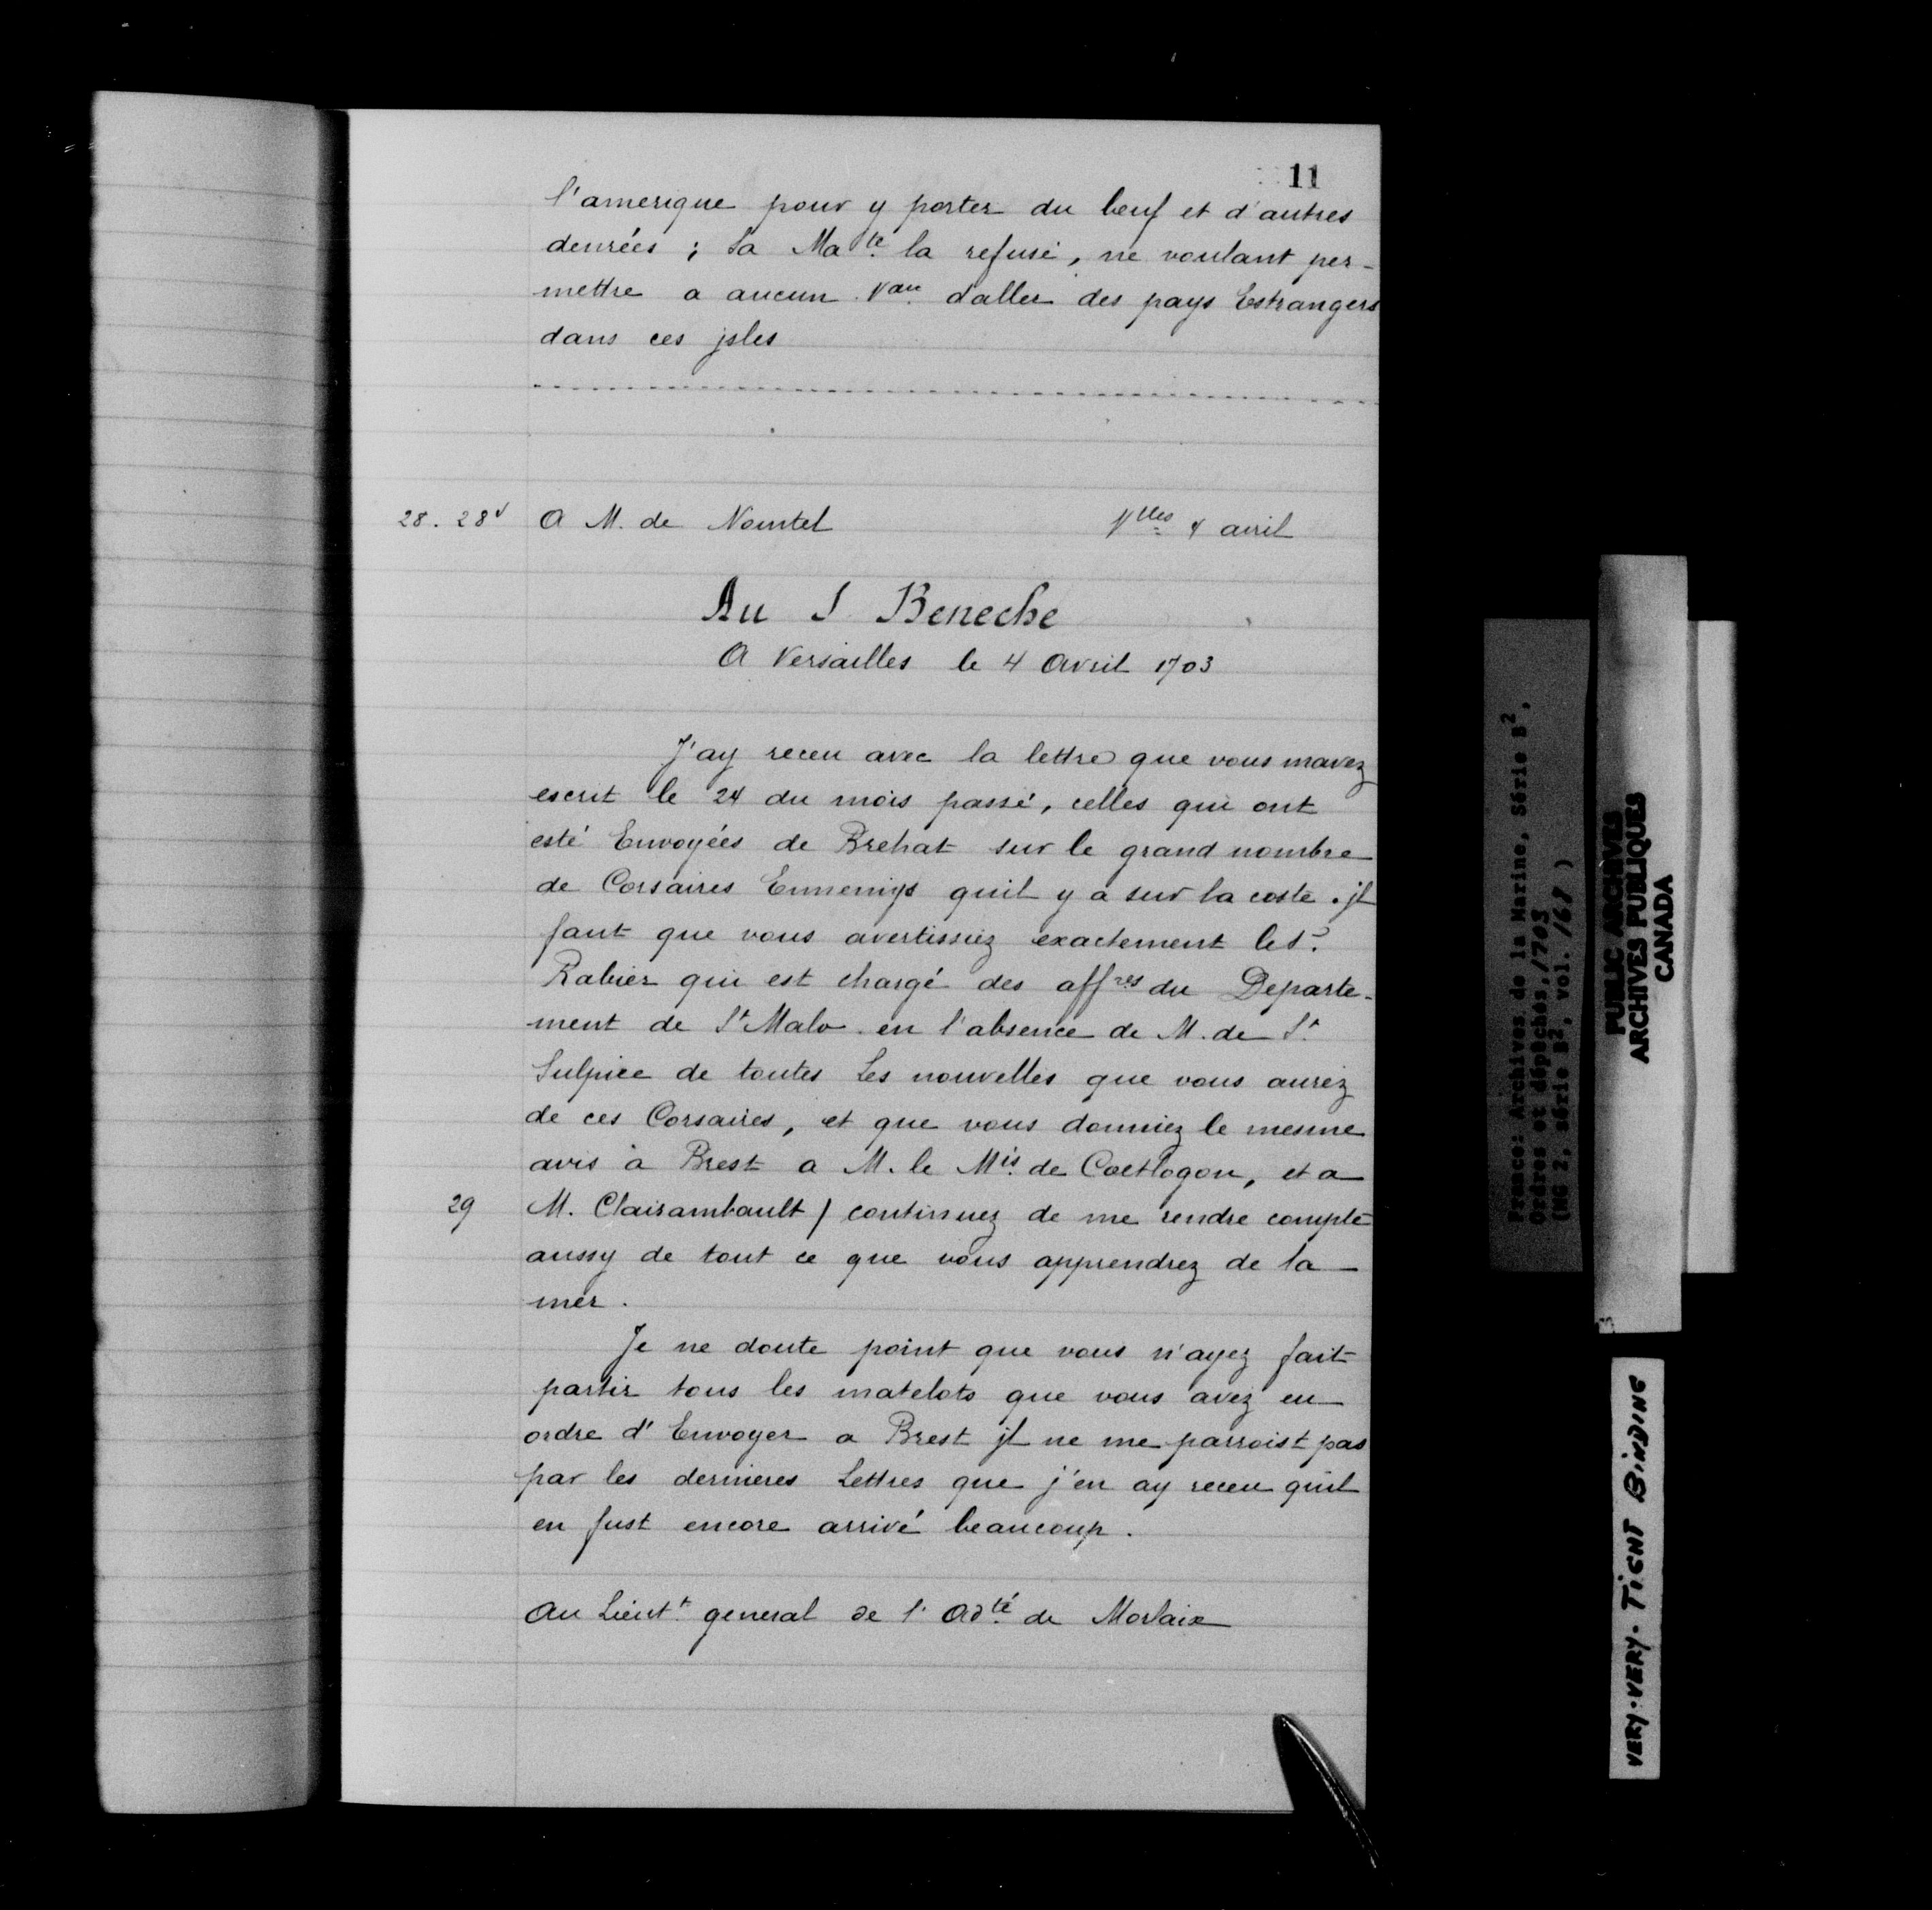 11
l'amerique pour y porter du beuf et d'autres
denrées ; Sa Ma.té la refusé, ne voulant per-
mettre a aucun Vau. daller des pays Estrangers
dans ces jsles
28. 28v A M. de Nointel Vlles 4 avril
Au S Beneche
A Versailles le 4 Avril 1703
J'ay receu avec la lettre que vous mavez
escrit le 24 du mois passé, celles qui ont
esté Envoyées de Brehat sur le grand nombre
de Corsaires Ennemys quil y a sur la coste . jl
faut que vous avertissiez exactement le S.
Rabier qui est chargé des aff.res du Departe-
ment de St Malo en l'absence de M. de St.
Sulpice de toutes Les nouvelles que vous aurez
de ces Corsaires, et que vous donniez le mesme
avis à Brest a M. le M.is de Coetlogon, et a
29 M. Clairambault / continuez de me rendre compte
aussy de tout ce que vous apprendrez de la
mer.
Je ne doute point que vous n'ayez fait
partir tous les matelots que vous avez eu
ordre d'Envoyer a Brest jl ne me parroist pas
par les dernieres Lettres que j'en ay receu quil
en fust encore arrivé beaucoup.
Au Lieut.t general de l'Ad.té de Morlaix
France: Archives de la Marine, Série B2,
Ordres et dépêches, 1703
(MG 2, série B2, vol. 168)
PUBLIC ARCHIVES
ARCHIVES PUBLIQUES
CANADA
VERY-VERY-TIGHT BINDING